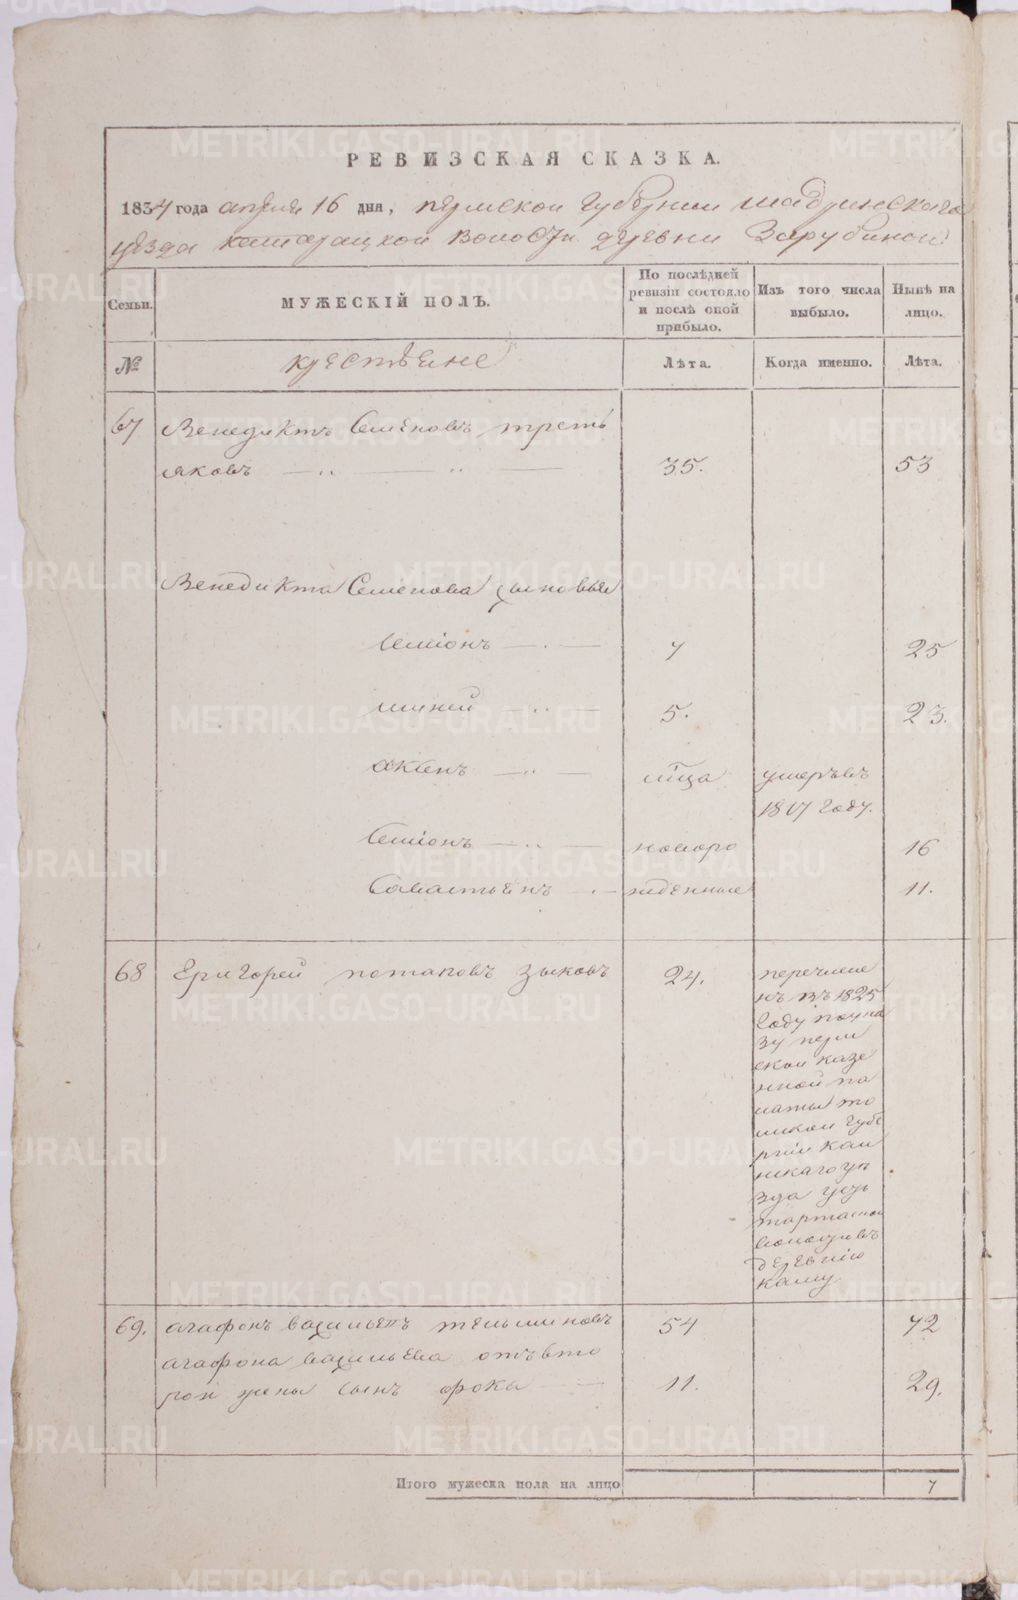 РЕВИЗСКАЯ СКАЗКА.
1834 года апреля 16 дня, пермской губернии шадринскаго
уезда волости деревни Зарубиной
Семьи.
МУЖЕСКІЙ ПОЛЪ.
По послѣдней ревизіи состояло и послѣ оной прибыло.
Изъ того числа выбыло.
Нынѣ на лицо.
№
крестьяне
Лѣта.
Когда именно.
Лѣта.
67 Венедиктъ Семеновъ треть
яковъ 35. 53
Венедикта Семенова сыновья
Семіонъ 7 25
5. 23.
лица умеръ въ
1817 году.
Семіонъ новоро 16
Савастьянъ жденные 11.
68 Григорей потаповъ зыковъ 24. перечисле
нъ въ 1825
году по ука
зу перм
ской казе
нной па
латы то
мской губе
рніи каи
нскаго уе
зда усть
тартаской
волости въ
деревню
69. агафонъ васильевъ 54 72
агафона васильева отъ вто
рой жены сынъ фока 11. 29.
Итого мужеска пола на лицо 7
METRIKI.GASO-URAL.RU